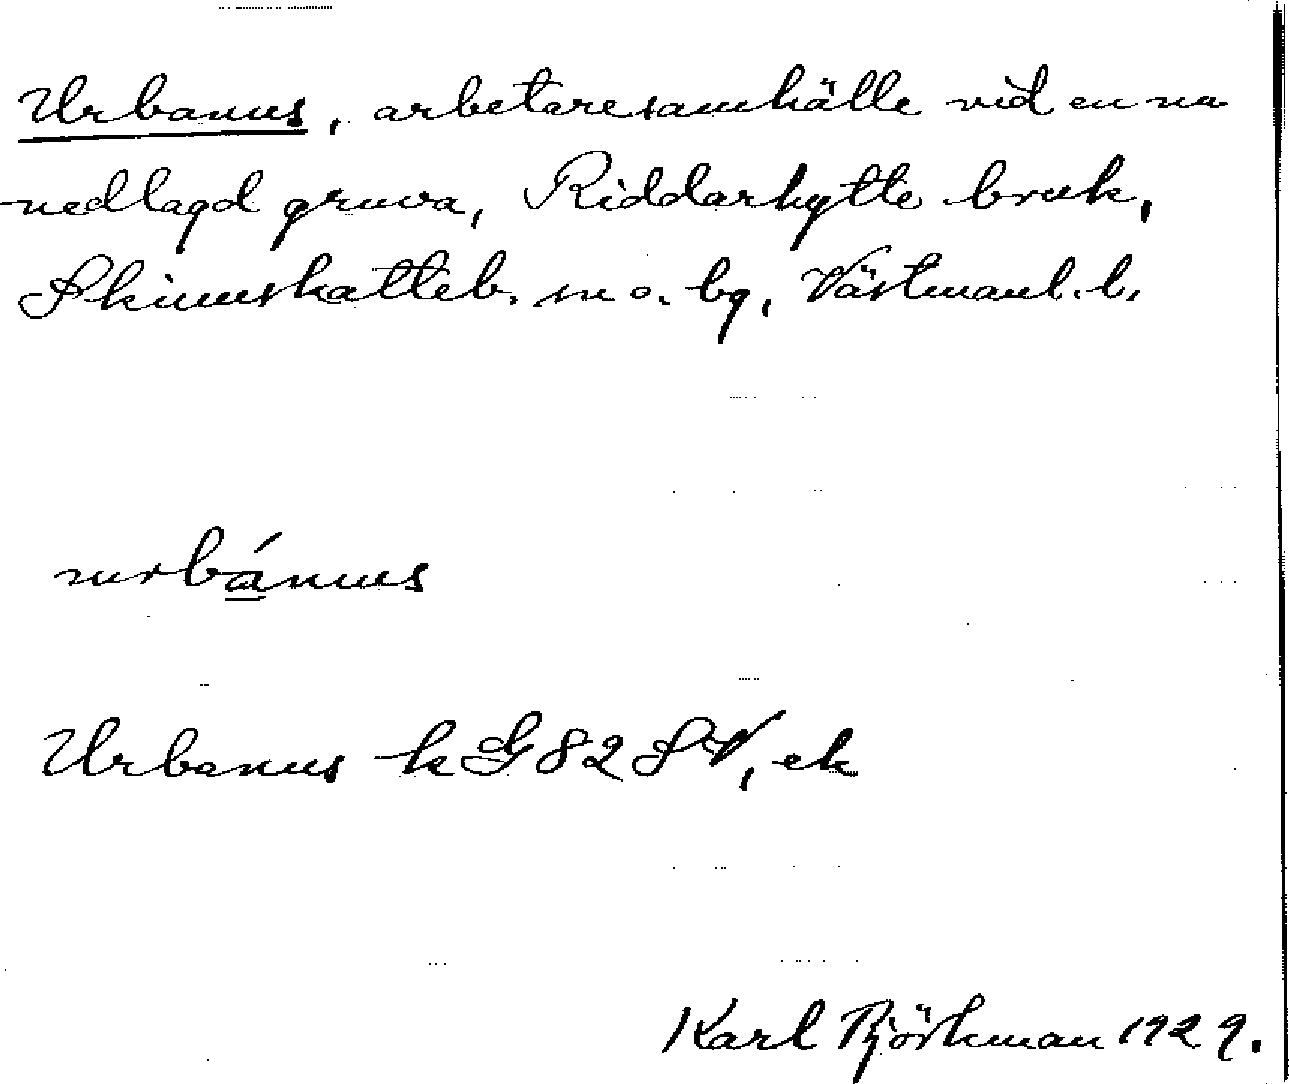 Urbanus, arbetaresamhälle vid en nu
nedlagd gruva, Riddarhytte bruk,
Skinnskatteb. sn o. bg, Västmanl. l.
urbánus
Urbanus k G82 SV, ek
Karl Björkman 1929.